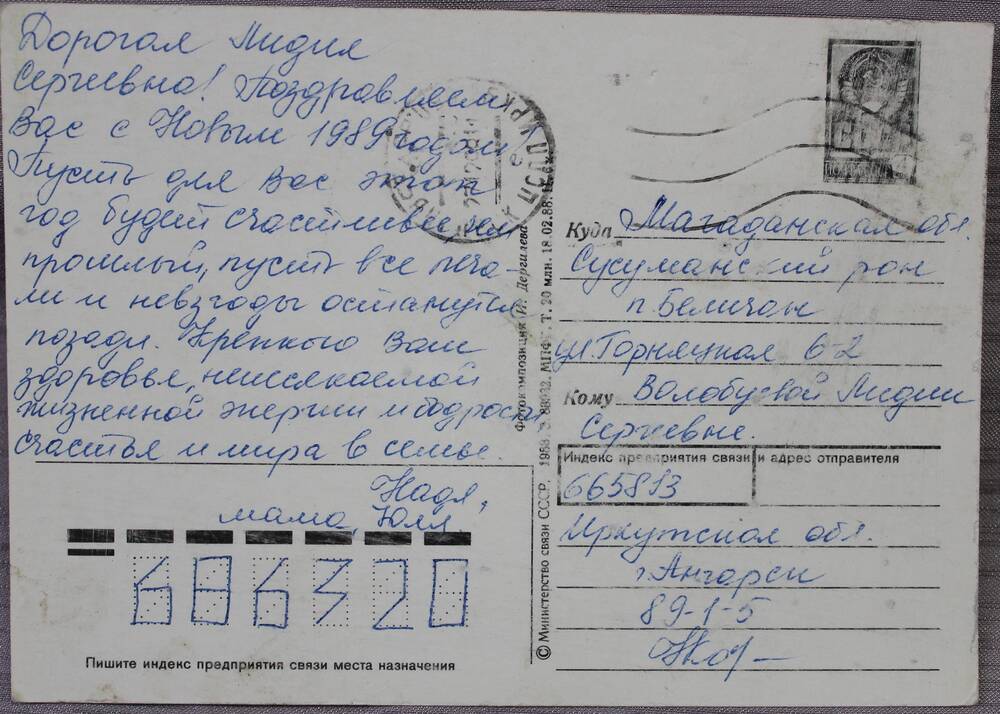 Дорогая Лидия
Сергеевна! Поздравляем
Вас с Новым 1989 годом
Пусть для Вас этот
год будет счастливее, чем
прошлый, пусть все печа-
ли и невзгоды останутся
позади. Крепкого Вам
здоровья, неиссякаемой
жизненной энергии и бодрости
счастья и мира в семье.
Надя,
мама, Юля.
686320
Пишите индекс предприятия связи места назначения
© Министерство связи СССР. 1988. З. 88032. МПФГ. Т. 20 млн. 18.02.88.
Фотокомпозиция И. Дергилева
Куда Магаданская обл.
Сусуманский р-он
п. Беличан
ул. Горняцкая 6-2
Кому Волобуевой Лидии
Сергеевне.
Индекс предприятия связи и адрес отправителя
665813
Иркутская обл.
г. Ангарск
89-1-5